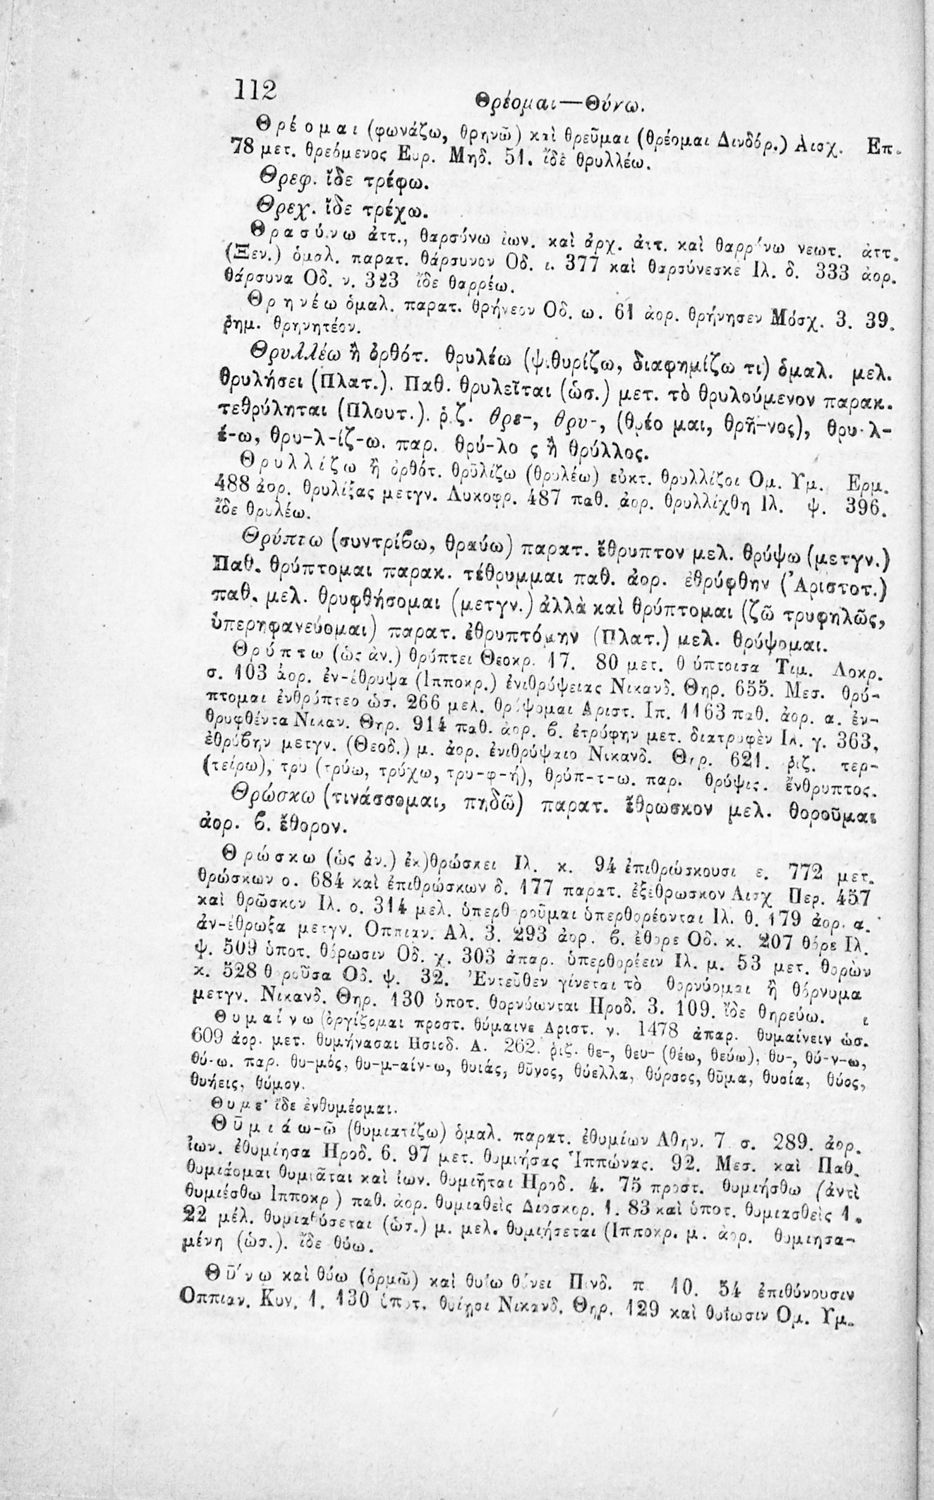 112
Θρέομαι—Θύνω.
Θρέομαι (φωνάζω, θρηνῶ) καὶ θρεῦμαι (θρέομαι Δινδόρ.) Αισχ. Επ.
78 μετ. θρεόμενος Ευρ. Μηδ. 51. ἴδὲ θρυλλέω.
Θρεφ. ἴδε τρέφω.
Θρεχ. ἴδε τρέχω.
Θρασύνω ἀττ., θαρσύνω ἰων. καὶ ἀρχ. ἀττ. καὶ θαρρύνω νεωτ. ἀττ.
(Ξεν.) ὁμαλ. παρατ. θάρσυνον Οδ. ι. 377 καὶ θαρσύνεσκε Ιλ. δ. 333 ἀορ.
θάρσυνα Οδ. ν. 323 ἴδε θαρρέω.
Θρηνέω ὁμαλ. παρατ. θρήνεον Οδ. ω. 61 ἀορ. θρήνησεν Μόσχ. 3. 39.
ῥημ. θρηνητέον.
Θρυλλέω ἢ ὀρθότ. θρυλέω (ψιθυρίζω, διαφημίζω τι) ὁμαλ. μελ.
θρυλήσει (Πλατ.). Παθ. θρυλεῖται (ὡσ.) μετ. τὸ θρυλούμενον παρακ.
τεθρύληται (Πλουτ.). ῥιζ. θρε-, θρυ-, (θρέο μαι, θρῆ-νος), θρυ-λ-
έ-ω, θρυ-λ-ίζ-ω. παρ. θρύ-λο ς ἢ θρύλλος.
Θρυλλίζω ἢ ὀρθότ. θρῡλίζω (θρυλέω) εὐκτ. θρυλλίζοι Ομ. Υμ. Ερμ.
488 ἀορ. θρυλίξας μετγν. Λυκοφρ. 487 παθ. ἀορ. θρυλλίχθη Ιλ. ψ. 396.
ἴδε θρυλέω.
Θρύπτω (συντρίβω, θραύω) παρατ. ἔθρυπτον μελ. θρύψω (μετγν.)
Παθ. θρύπτομαι παρακ. τέθρυμμαι παθ. ἀορ. ἐθρύφθην (Ἀριστοτ.)
παθ. μελ. θρυφθήσομαι (μετγν.) ἀλλὰ καὶ θρύπτομαι (ζῶ τρυφηλῶς,
ὑπερηφανεύομαι) παρατ. ἐθρυπτόμην (Πλατ.) μελ. θρύψομαι.
Θρύπτω (ὡς ἀν.) θρύπτει Θεοκρ. 17. 80 μετ. θ ύπτοισα Τιμ. Λοκρ.
σ. 103 ἀορ. ἐν-έθρυψα (Ιπποκρ.) ἐνιθρύψειας Νικανδ. Θηρ. 655. Μεσ. θρύ-
πτομαι ἐνθρύπτεο ὡσ. 266 μελ. θρύψομαι Αριστ. Ιπ. 1163 παθ. ἀορ. α. ἐν-
θρυφθέντα Νικαν. Θηρ. 914 παθ. ἀορ. β. ἐτρύφην μετ. διατρυφὲν Ιλ. γ. 363,
ἐθρύβην μετγν. (Θεοδ.) μ. ἀορ. ἐνιθρύψαιο Νικανδ. Θηρ. 621. ῥιζ. τερ-
(τείρω), τρυ (τρύω, τρύχω, τρυ-φ-ή), θρύπ-τ-ω. παρ. θρύψις. ἔνθρυπτος.
Θρώσκω (τινάσσομαι, πηδῶ) παρατ. ἔθρωσκον μελ. θοροῦμαι
ἀορ. β. ἔθορον.
Θρώσκω (ὡς ἀν.) ἐκ)θρώσκει Ιλ. κ. 94 ἐπιθρώσκουσι ε. 772 μετ.
θρώσκων ο. 684 καὶ ἐπιθρώσκων δ. 177 παρατ. ἐξέθρωσκον Αισχ Περ. 457
καὶ θρῶσκον Ιλ. ο. 314 μελ. ὑπερθοροῦμαι ὑπερθορέονται Ιλ. θ. 179 ἀορ. α.
ἀν-έθρωξα μετγν. Οππιαν. Αλ. 3. 293 ἀορ. β. ἔθορε Οδ. κ. 207 θόρε Ιλ.
ψ. 509 ὑποτ. θόρωσιν Οδ. χ. 303 ἀπαρ. ὑπερθορέειν Ιλ. μ. 53 μετ. θορὼν
κ. 528 θοροῦσα Οδ. ψ. 32. Ἐντεῦθεν γίνεται τὸ θορνύομαι ἢ θόρνυμα
μετγν. Νικανδ. Θηρ. 130 ὑποτ. θορνύωνται Ηροδ. 3. 109. ἴδε θηρεύω.
Θυμαίνω (ὀργίζομαι προστ. θύμαινε Αριστ. ν. 1478 ἀπαρ. θυμαίνειν ὡσ.
609 ἀορ. μετ. θυμήνασαι Ησιοδ. Α. 262. ῥιζ. θε-, θευ- (θέω, θεύω), θυ-, θύ-ν-ω,
θύ-ω. παρ. θυ-μός, θυ-μ-αίν-ω, θυιάς, θῦνος, θύελλα, θύρσος, θῦμα, θυσία, θύος,
θυήεις, θύμον.
Θυμε· ἴδε ἐνθυμέομαι.
Θῡμιάω-ῶ (θυμιατίζω) ὁμαλ. παρατ. ἐθυμίων Αθην. 7 σ. 289. ἀορ.
ἰων. ἐθυμίησα Ηροδ. 6. 97 μετ. θυμιήσας Ἱππώνας. 92. Μεσ. καὶ Παθ.
θυμιάομαι θυμιᾶται καὶ ἰων. θυμιῆται Ηροδ. 4. 75 προστ. θυμιήσθω (ἀντὶ
θυμιέσθω Ιπποκρ ) παθ. ἀορ. θυμιαθεὶς Διοσκορ. 1. 83 καὶ ὑποτ. θυμιασθεὶς 1.
22 μέλ. θυμιαθύσεται (ὡσ.) μ. μελ. θυμιήσεται (Ιπποκρ. μ. ἀορ. θυμιησα-
μένη (ὡσ.). ἴδε θύω.
Θῡ́νω καὶ θύω (ὁρμῶ) καὶ θυίω θύνει Πινδ. π 10. 54 ἐπιθύνουσιν
Οππιαν. Κυν. 1. 130 ὑποτ. θυίῃσι Νικανδ. Θηρ. 129 καὶ θυίωσιν Ομ. Υμ.